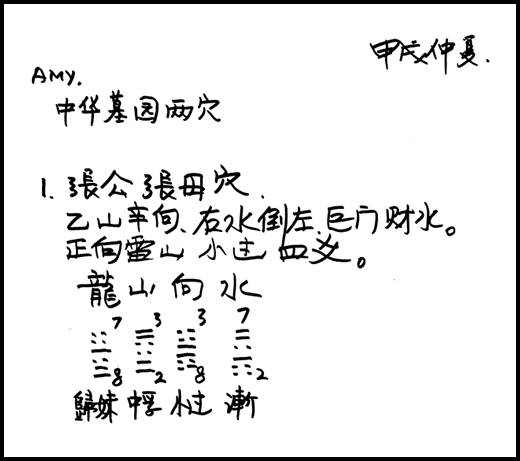 甲戌仲夏.
AMY.
中华墓园两穴
1. 張公張母穴.
乙山辛向、右水倒左、巨门财水。
正向雷山小过四爻。
龍山向水
7 3 3 7
8 2 8 2
歸妹 中孚 小过 漸